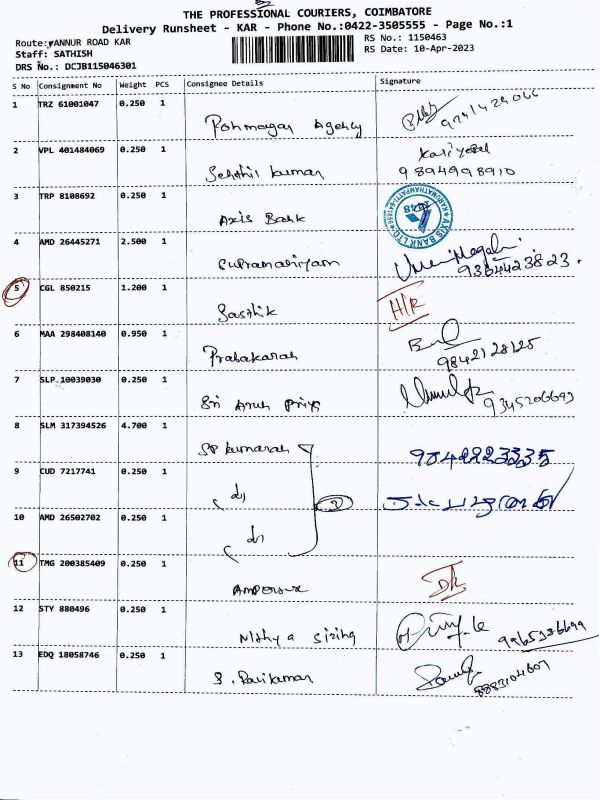 THE PROFESSIONAL COURIERS, COIMBATORE
Delivery Runsheet - KAR - Phone No.:0422-3505555 - Page No.:1
Route:VANNUR ROAD KAR
RS No.: 1150463
Staff: SATHISH
RS Date: 10-Apr-2023
DRS No.: DCJB115046301
S No Consignment No Weight PCS Consignee Details Signature
1 TRZ 61001047 0.250 1 Agency
2 VPL 401484069 0.250 1 Senthil kumar
9894998910
3 TRP 8108692 0.250 1 Axis Bank
AXIS BANK LTD
4 AMD 26445271 2.500 1
9364423823.
5 CGL 850215 1.200 1 Sasthik
6 MAA 298408140 0.950 1 Prabakaran
9842128125
7 SLP 10039030 0.250 1 Sri Arul Priya
9345206693
8 SLM 317394526 4.700 1 SP kumaran 9842223335
9 CUD 7217741 0.250 1
10 AMD 26502702 0.250 1
11 TMG 200385409 0.250 1
12 STY 880496 0.250 1 Nithya Sizing
9965336699
13 EDQ 18058746 0.250 1 S. Ravikumar
8883104607